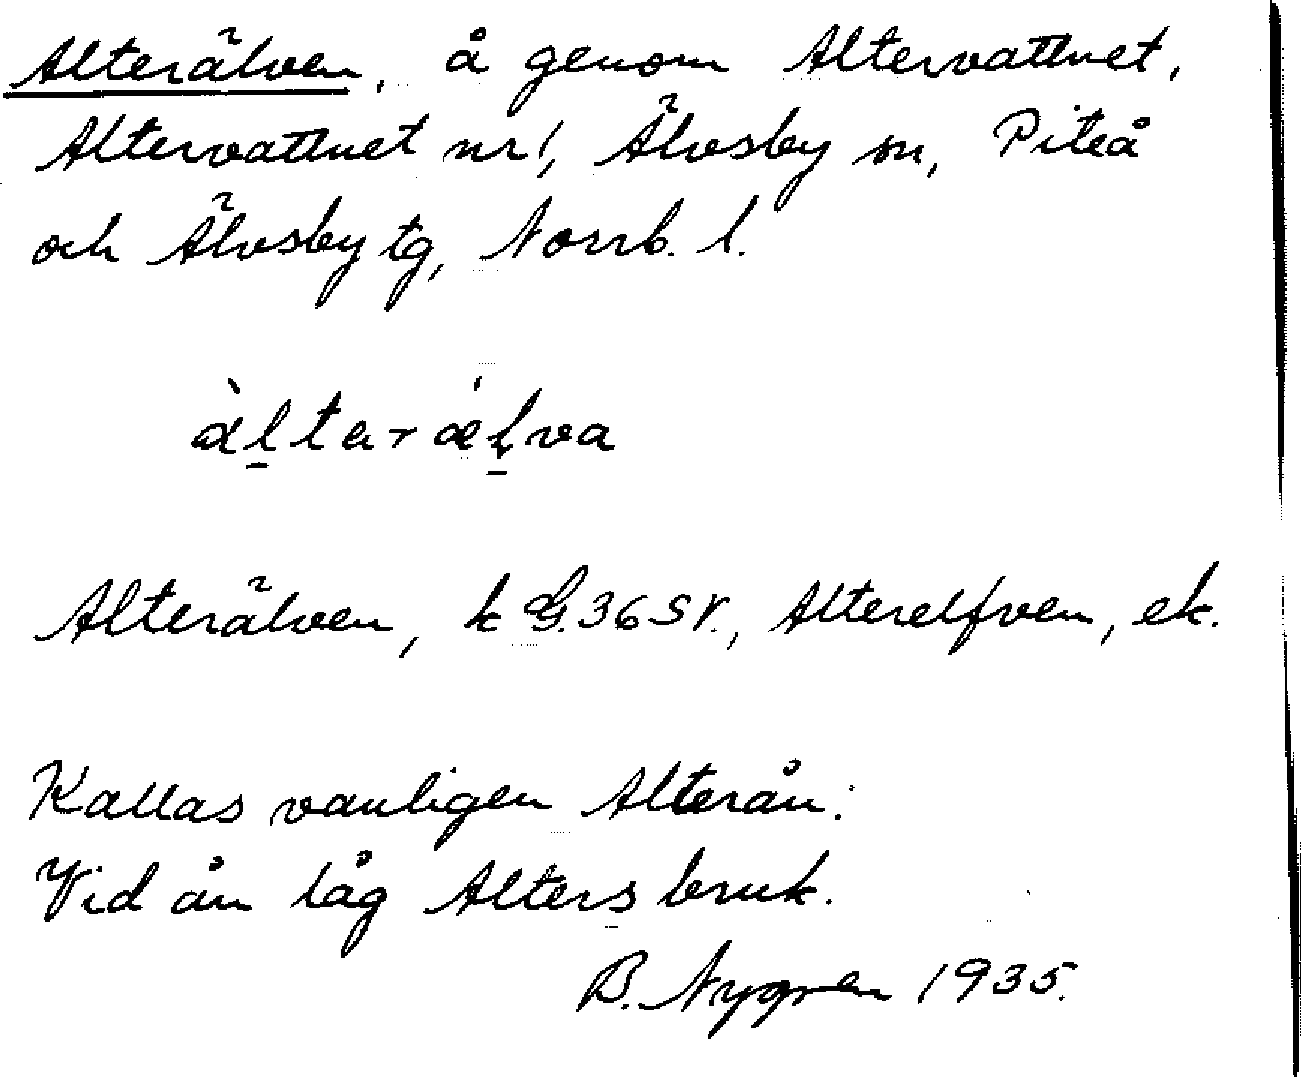 Alterälven, å genom Altervattnet,
Altervattnet nr 1, Älvsby sn, Piteå
och Älvsby tg, Norrb. l.
àltar ǽlva
Alterälven, k G.36SV., Alterelfven, ek.
Kallas vanligen Alterån.
Vid ån låg Alters bruk.
B. Nygren 1935.